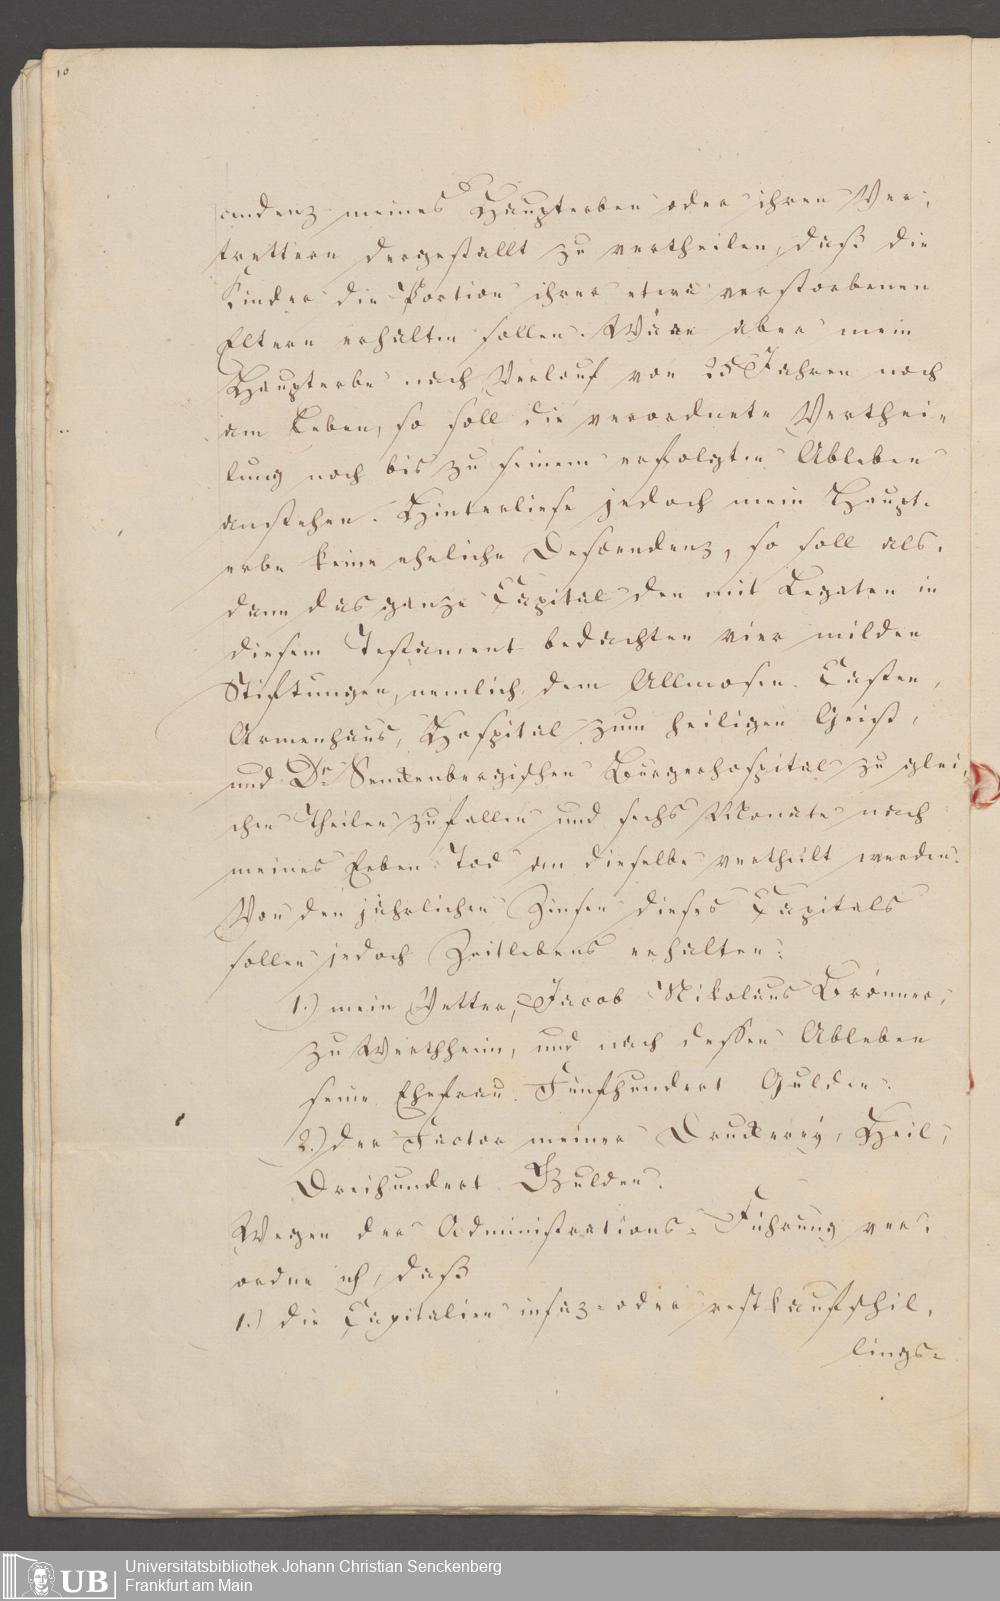 10
endenz meines Haupterben oder ihren Ver-
trettern dergestallt zu vertheilen, daß die
Kinder die Portion ihrer etwa verstorbenen
Eltern erhalten sollen. Wäre aber mein
Haupterbe nach Verlauf von 25 Jahren noch
am Leben, so soll die verordnete Verthei-
lung noch bis zu seinem erfolgten Ableben
anstehen. Hinterliese jedoch mein Haupt-
erbe keine eheliche Descendenz, so soll als-
dann das ganze Capital den mit Legaten in
diesem Testament bedachten vier milden
Stiftungen, nemlich dem Allmosen-Casten,
Armenhaus, Hospital zum heiligen Geist,
und Dr. Senckenbergischen Bürgerhospital zu glei-
chen Theilen zufallen und sechs Monate nach
meines Erben Tod an dieselbe vertheilt werden.
Von den jährlichen Zinsen dieses Capitals
sollen jedoch Zeitlebens erhalten:
1.) mein Vetter, Jacob Nikolaus Brönner,
zu Werthheim, und nach dessen Ableben
seine Ehefrau Fünfhundert Gulden.
2.) der Factor meiner Druckerey, Heil,
Dreihundert Gulden.
Wegen der Administrations-Führung ver-
ordne ich, daß
1.) die Capitalien insaz- oder restkaufschil-
lings-
Universitätsbibliothek Johann Christian Senckenberg
Frankfurt am Main
UB